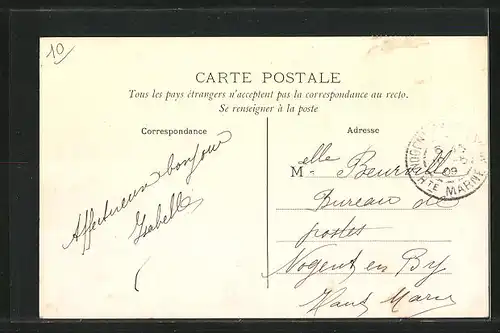 10
CARTE POSTALE
Tous les pays étrangers n'acceptent pas la correspondance au recto.
Se renseigner à la poste
Correspondance
Affectueux bonjour
Isabelle
Adresse
Melle Beurville
Bureau de
postes
Nogent en By
Haute Marne
NOGENT
09
HTE MARNE